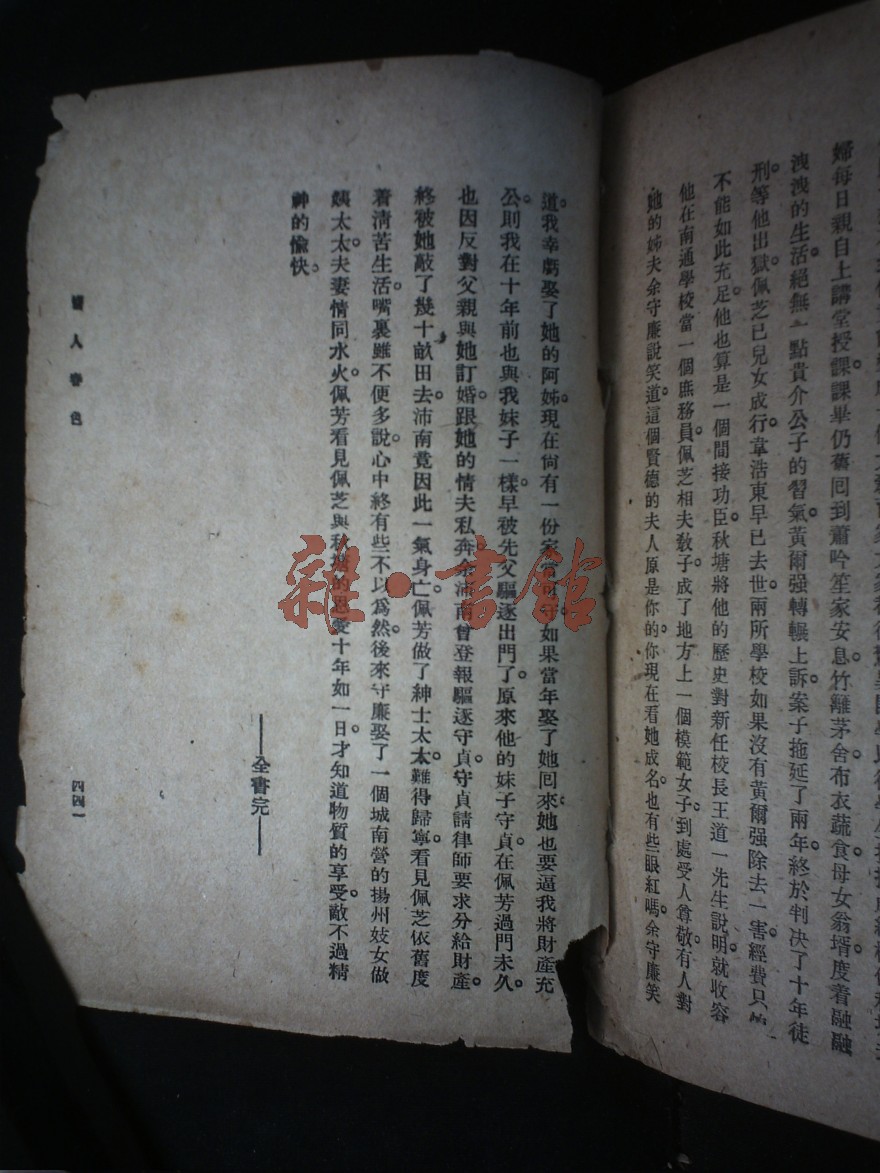 婦每日親自上講堂授課。課畢仍舊回到蕭吟笙家安息。竹籬茅舍。布衣蔬食。母女翁壻。度着融融
洩洩的生活。絕無一點貴介公子的習氣。黃爾强轉輾上訴。案子拖延了兩年。終於判决了十年徒
刑。等他出獄。佩芝已兒女成行。韋浩東早已去世。兩所學校如果沒有黃爾强除去一害。經費只
不能如此充足。他也算是一個間接功臣。秋塘將他的歷史對新任校長王道一先生說明。就收容
他在南通學校當一個庶務員。佩芝相夫敎子。成了地方上一個模範女子。到處受人尊敬。有人對
她的姊夫余守廉說笑道。這個賢德的夫人。原是你的。你現在看她成名。也有些眼紅嗎。余守廉笑
道。我幸虧娶了她的阿姊。現在尙有一份家當可守。如果當年娶了她回來。她也要逼我將財產充
公。則我在十年前也與我妹子一樣。早被先父驅逐出門了。原來他的妹子守貞。在佩芳過門未久。
也因反對父親與她訂婚。跟她的情夫私奔。余沛南曾登報驅逐守貞。守貞請律師要求分給財產。
終被她敲了幾十畝田去。沛南竟因此一氣身亡。佩芳做了紳士太太。難得歸寧。看見佩芝依舊度
着淸苦生活。嘴裏雖不便多說。心中終有些不以爲然。後來守廉娶了一個城南營的揚州妓女做
姨太太。夫妻情同水火。佩芳看見佩芝與秋塘的恩愛。十年如一日。才知道物質的享受。敵不過精
神的愉快。
——全書完——
人春色
四四一
雜·書館